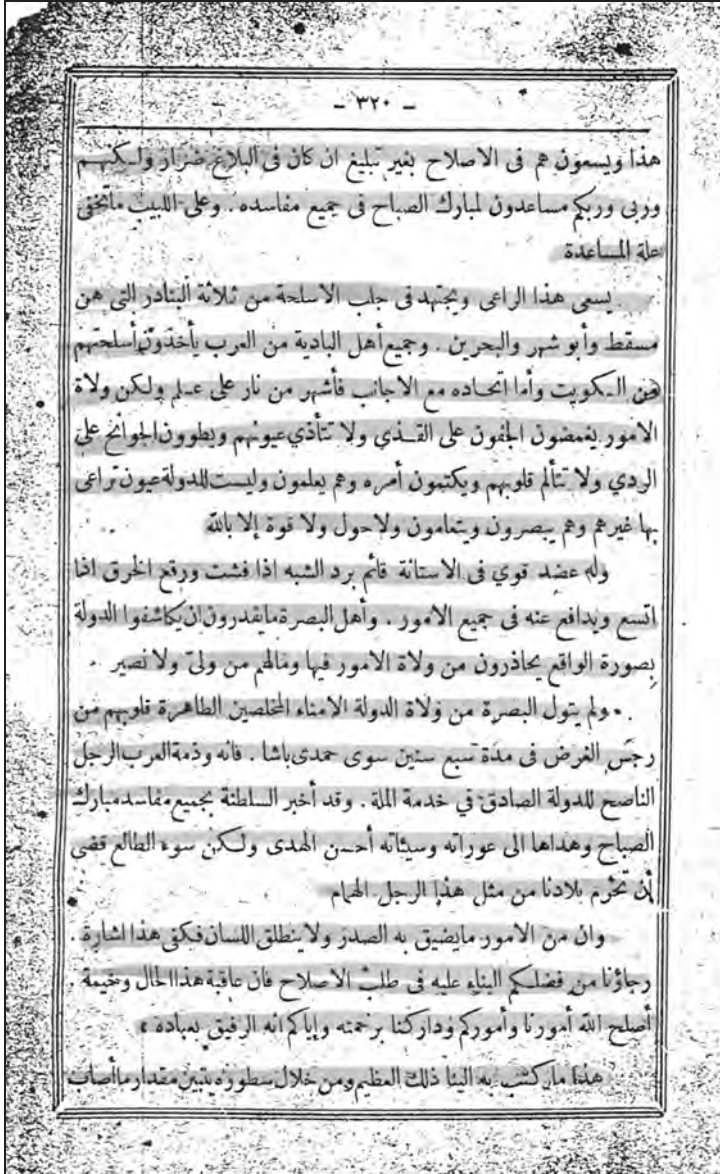 — ٣٢٠ —
هذا ويسعون هم فى الاصلاح بغير تبليغ ان كان فى البلاغ ضرار ولكنهم
وربى وربكم مساعدون لمبارك الصباح فى جميع مفاسده . وعلى اللبيب ماتخفى
علة المساعدة
يسعى هذا الراعى ويجتهد فى جلب الاسلحة من ثلاثة البنادر التى هن
مسقط وأبو شهر والبحرين . وجميع أهل البادية من العرب يأخذون أسلحتهم
من الكويت وأما اتحاده مع الاجانب فأشهر من نار على علم ولكن ولاة
الامور يغمضون الجفون على القذي ولا تتأذي عيونهم ويطوون الجوانح على
الردي ولا تتألم قلوبهم ويكتمون أمره وهم يعلمون وليست للدولة عيون تراعى
بها غيرهم وهم يبصرون ويتعامون ولا حول ولا قوة إلا بالله
وله عضد قوي فى الاستانة قائم برد الشبه اذا فشت ورقع الخرق اذا
اتسع ويدافع عنه فى جميع الامور . وأهل البصرة مايقدرون ان يكاشفوا الدولة
بصورة الواقع يحاذرون من ولاة الامور فيها ومالهم من ولىّ ولا نصير
ولم يتول البصرة من ولاة الدولة الامناء المخلصين الطاهرة قلوبهم من
رجس الغرض فى مدة سبع سنين سوى حمدى باشا . فانه وذمة العرب الرجل
الناصح للدولة الصادق في خدمة الملة . وقد أخبر السلطنة بجميع مفاسد مبارك
الصباح وهداها الى عوراته وسيئاته أحسن الهدى ولكن سوء الطالع قضى
أن تحرم بلادنا من مثل هذا الرجل الهمام
وان من الامور مايضيق به الصدر ولا ينطلق اللسان فكفى هذا اشارة .
رجاؤنا من فضلكم البناء عليه فى طلب الاصلاح فان عاقبة هذا الحال وخيمة .
أصلح الله أمورنا وأموركم وداركنا برحمته وإياكم انه الرفيق بعباده »
هذا ما كتب به الينا ذلك العظيم ومن خلال سطوره يتبين مقدار ما أصاب